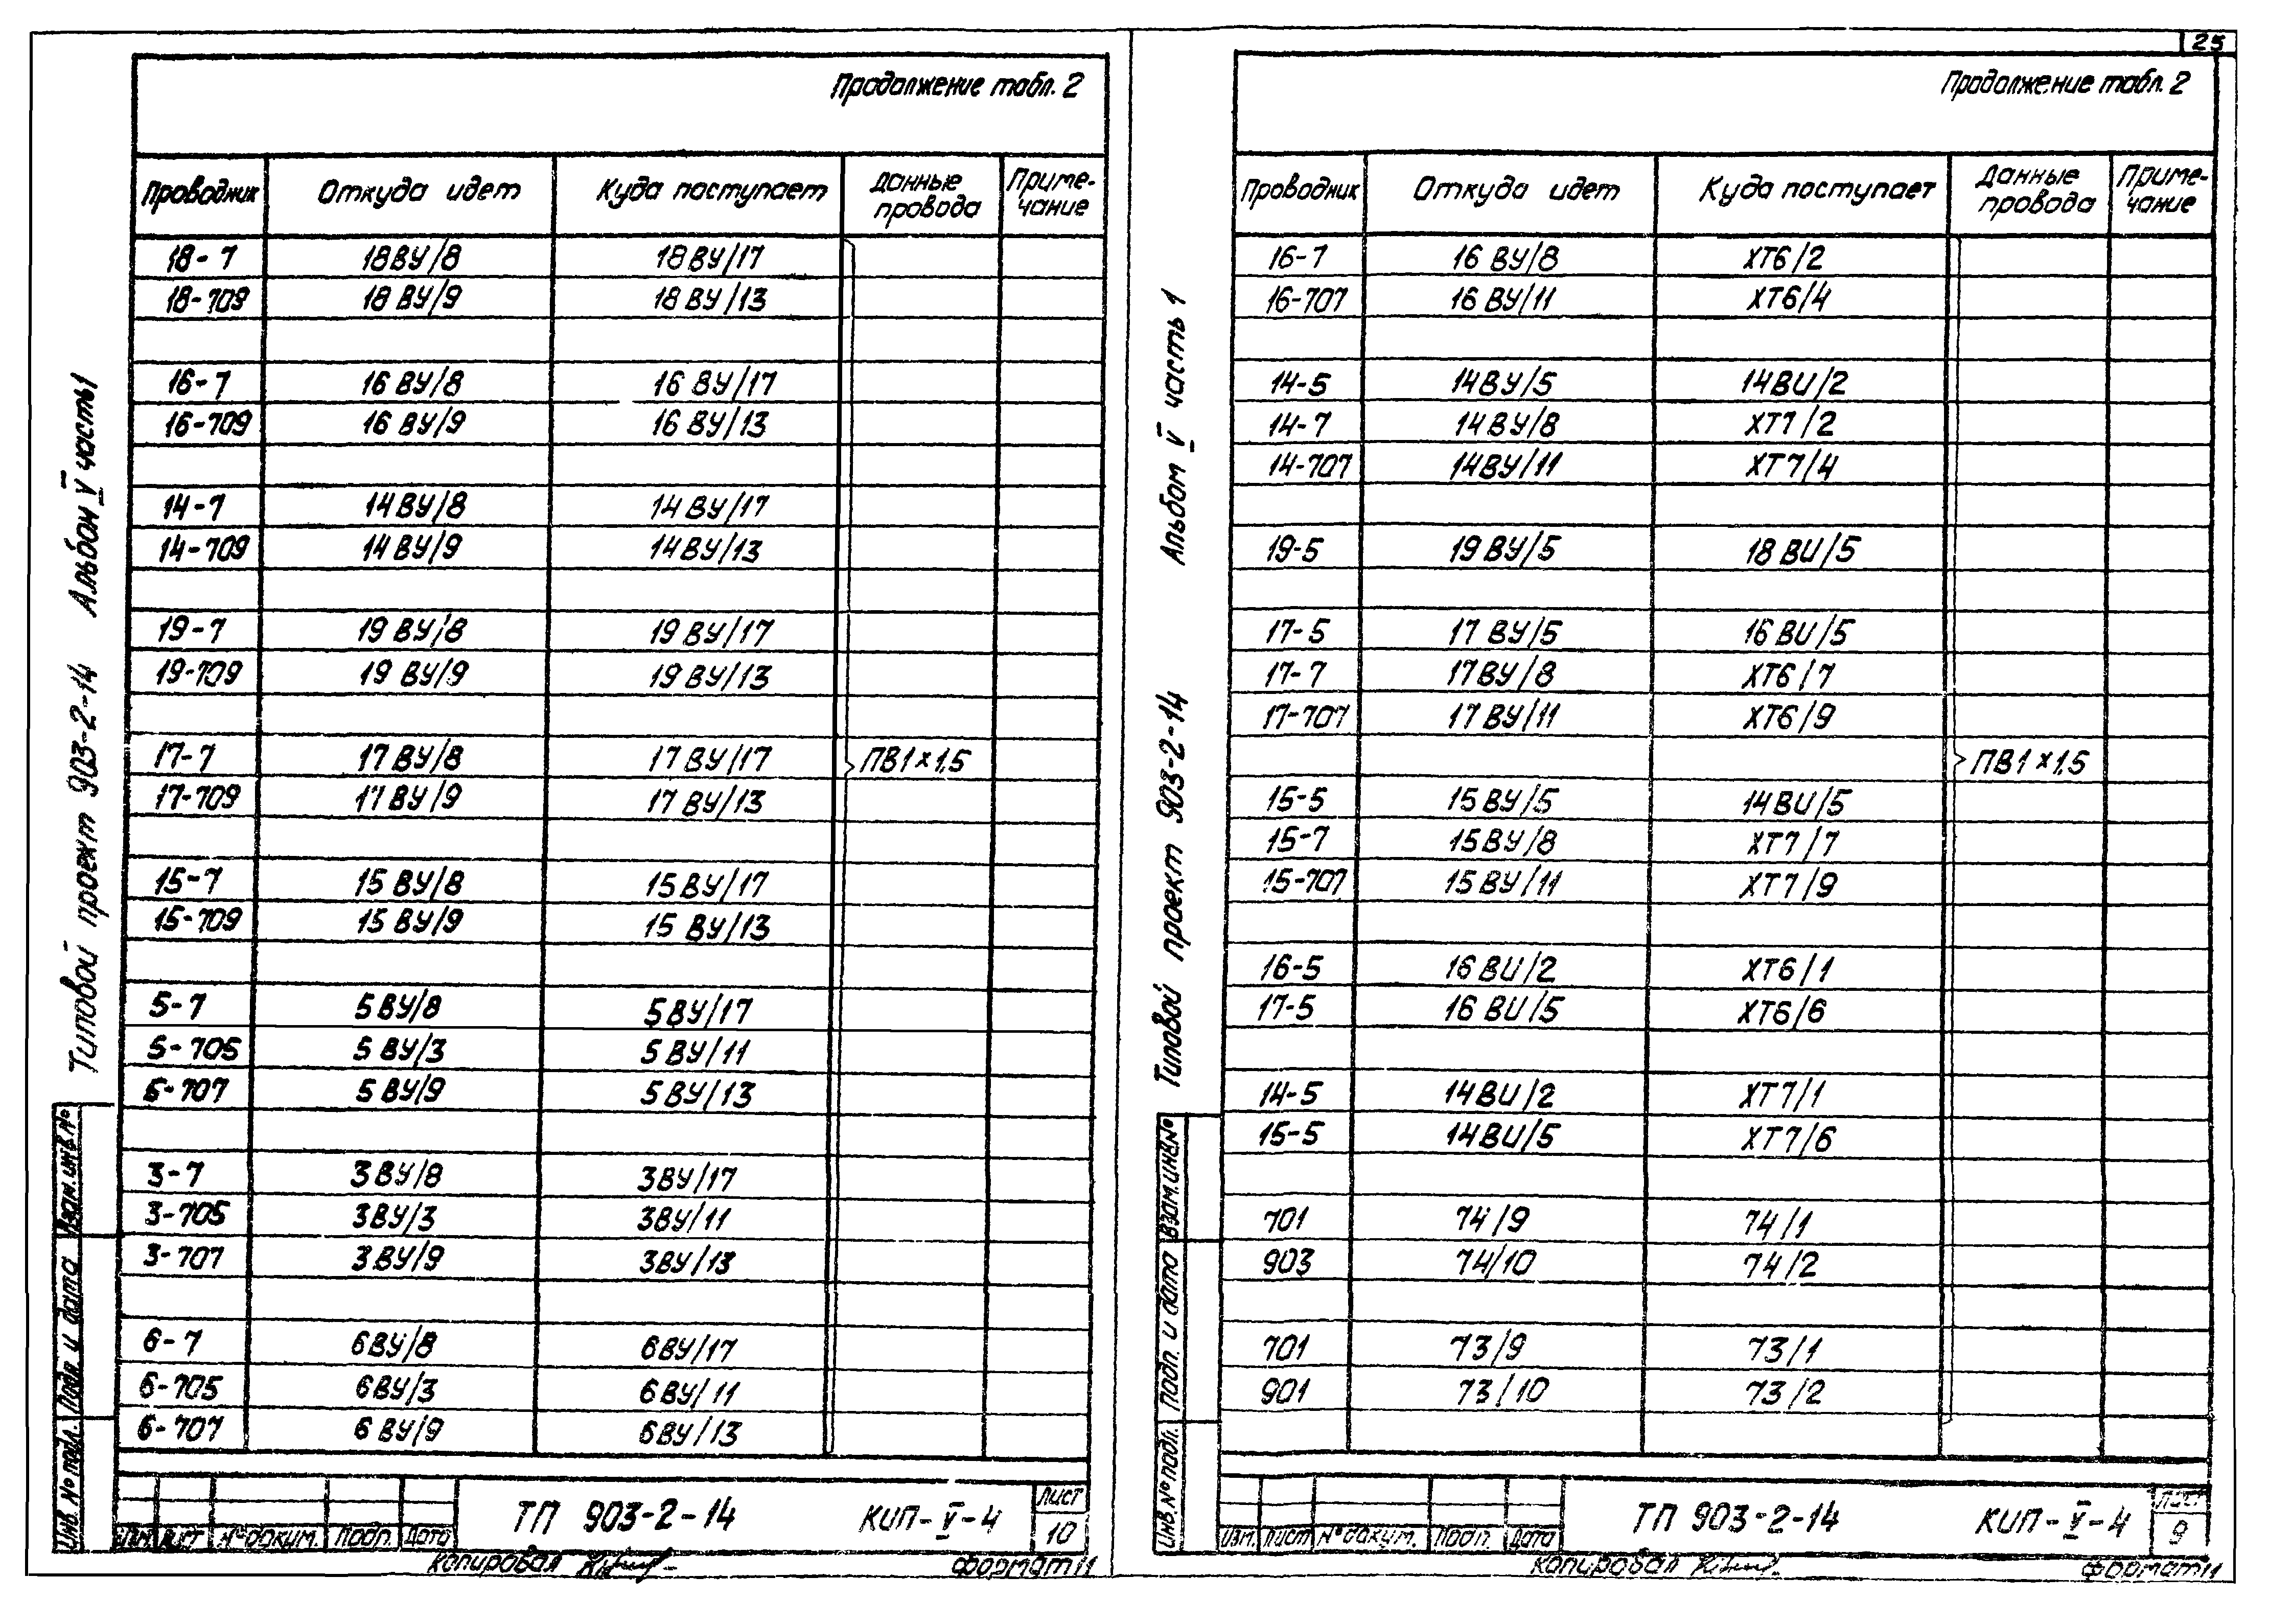 25
Продолжение табл. 2
Проводник Откуда идет Куда поступает Данные провода Приме-чание
18-7 18ВУ/8 18ВУ/17
18-709 18ВУ/9 18ВУ/13
16-7 16ВУ/8 16ВУ/17
16-709 16ВУ/9 16ВУ/13
14-7 14ВУ/8 14ВУ/17
14-709 14ВУ/9 14ВУ/13
19-7 19ВУ/8 19ВУ/17
19-709 19ВУ/9 19ВУ/13
17-7 17ВУ/8 17ВУ/17 ПВ1×1,5
17-709 17ВУ/9 17ВУ/13
15-7 15ВУ/8 15ВУ/17
15-709 15ВУ/9 15ВУ/13
5-7 5ВУ/8 5ВУ/17
5-705 5ВУ/3 5ВУ/11
5-707 5ВУ/9 5ВУ/13
3-7 3ВУ/8 3ВУ/17
3-705 3ВУ/3 3ВУ/11
3-707 3ВУ/9 3ВУ/13
6-7 6ВУ/8 6ВУ/17
6-705 6ВУ/3 6ВУ/11
6-707 6ВУ/9 6ВУ/13
Типовой проект 903-2-14 Альбом V часть 1
Инв. № подл. Подп. и дата Взам. инв. №
Изм. Лист № докум. Подп. Дата
ТП 903-2-14 КИП-V-4
Лист
10
Копировал
Формат 11
Продолжение табл. 2
Проводник Откуда идет Куда поступает Данные провода Приме-чание
16-7 16ВУ/8 ХТ6/2
16-707 16ВУ/11 ХТ6/4
14-5 14ВУ/5 14ВИ/2
14-7 14ВУ/8 ХТ7/2
14-707 14ВУ/11 ХТ7/4
19-5 19ВУ/5 18ВИ/5
17-5 17ВУ/5 16ВИ/5
17-7 17ВУ/8 ХТ6/7
17-707 17ВУ/11 ХТ6/9
ПВ1×1,5
15-5 15ВУ/5 14ВИ/5
15-7 15ВУ/8 ХТ7/7
15-707 15ВУ/11 ХТ7/9
16-5 16ВИ/2 ХТ6/1
17-5 16ВИ/5 ХТ6/6
14-5 14ВИ/2 ХТ7/1
15-5 14ВИ/5 ХТ7/6
701 74/9 74/1
903 74/10 74/2
701 73/9 73/1
901 73/10 73/2
Типовой проект 903-2-14 Альбом V часть 1
Инв. № подл. Подп. и дата Взам. инв. №
Изм. Лист № докум. Подп. Дата
ТП 903-2-14 КИП-V-4
Лист
9
Копировал
Формат 11